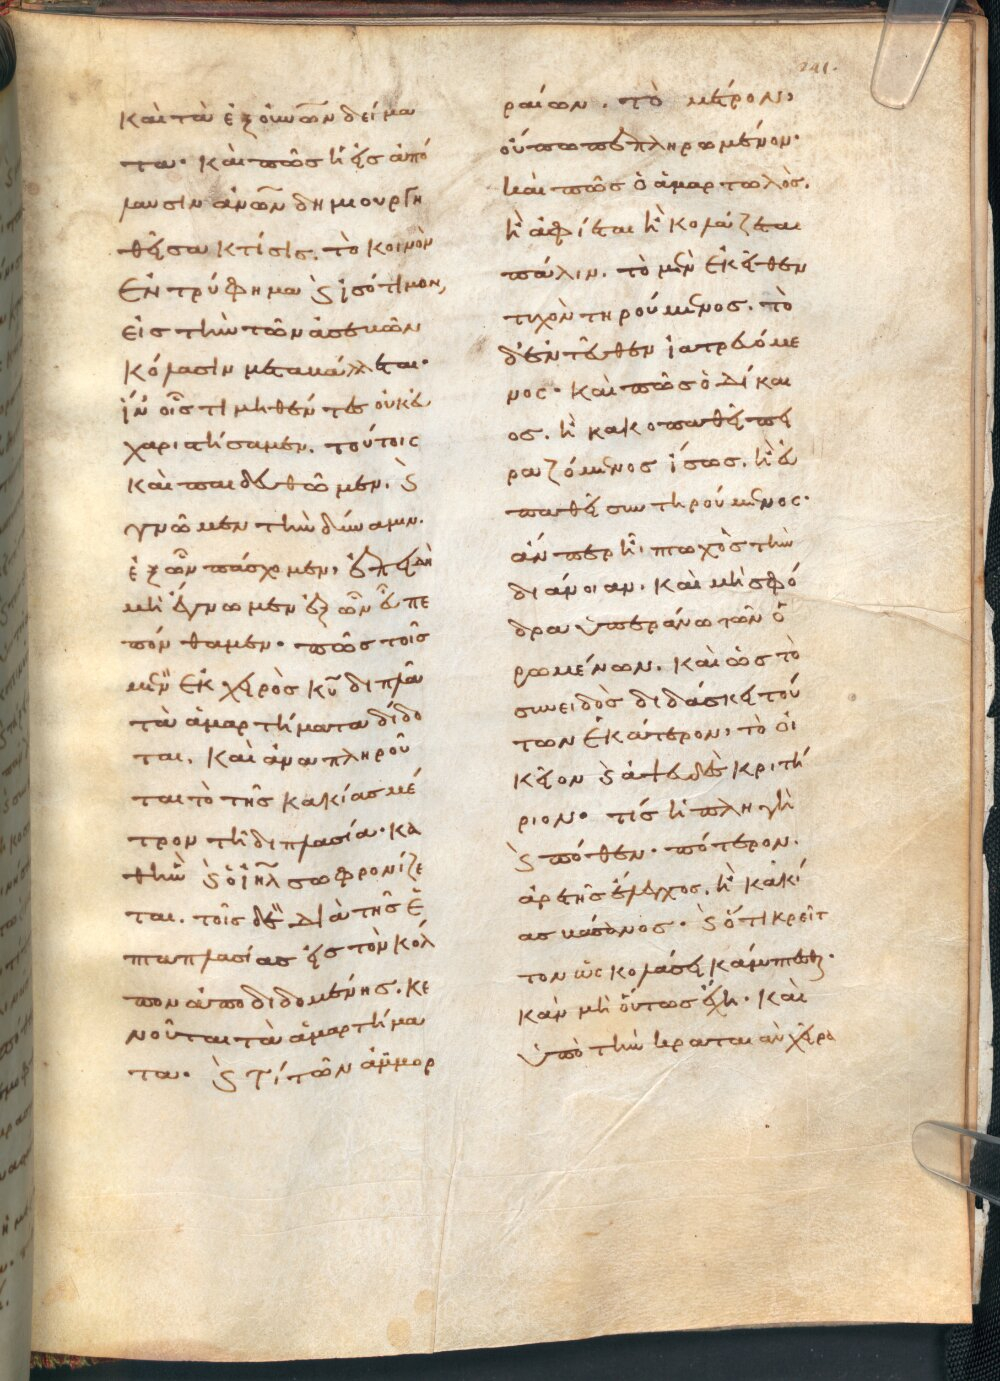 καὶ τὰ ἐξ οἴκων δείμα
τα· καὶ πῶς ἡ εἰς ἀπό
λαυσιν ἀν̅ων δημιουργη
θεῖσα κτίσις. τὸ κοινὸν
ἐντρύφημα ϗ ἰσότιμον,
εἰς τὴν τῶν ἀσεβῶν
κόλασιν μεταβάλλεται·
ἵν' οἷς τιμηθέντες οὐκ εὐ
χαριστήσαμεν. τούτοις
καὶ παιδευθῶμεν. ϗ
γνῶμεν τὴν δύναμιν.
ἐξ ὧν πάσχομεν, ἐπειδὴ
μὴ ἔγνωμεν ἐξ ὧν εὖ πε
πόνθαμεν· πῶς τοῖς
μὲν ἐκ χειρὸς κ̅υ̅ διπλᾶ
τὰ ἁμαρτήματα δίδο
ται. καὶ ἀναπληροῦ
ται τὸ τῆς κακίας μέ
τρον τῆ διπλασία· κα
θ' ἣν ϗ ὁ ἰ̅η̅λ̅ σωφρονίζε
ται. τοῖς δὲ διὰ τῆς ἑ
πταπλασίας εἰς τὸν κόλ
πον ἀποδιδομένης. κε
νοῦται τὰ ἁμαρτήμα
τα· ϗ τί τῶν ἀμμορ
ραίων. τὸ μέτρον,
οὔπω πεπληρωμένον·
καὶ πῶς ὁ ἁμαρτωλὸς.
ἢ ἀφίεται ἢ κολάζεται
πάλιν. τὸ μὲν ἐκεῖθεν
τυχὸν τηρούμενος. τὸ
δ' ἐντεῦθεν ἰατρευόμε
νος· καὶ πῶς ὁ δίκαι
ος. ἢ κακοπαθεῖ πει
ραζόμενος ἴσως. ἢ εὐ
παθεῖ συντηρούμενος·
ἄνπερ ἦ πτωχὸς τὴν
διάνοιαν. καὶ μὴ σφό
δρα ὑπεράνω τῶν ὁ
ρωμένων. καὶ ὡς τὸ
συνειδὸς διδάσκει τού
των ἑκάτερον, τὸ οἰ
κεῖον ϗ ἀψευδὲς κριτή
ριον· τίς ἡ πληγὴ
ϗ πόθεν· πότερον.
ἀρετῆς ἔλεγχος. ἢ κακί
ας βάσανος· ϗ ὅτι κρεῖτ
τον ὡς κολάσει κάμπτεσθαι·
κἂν μὴ οὕτως ἔχη· καὶ
ὑπὸ τὴν κραταιὰν χεῖρα